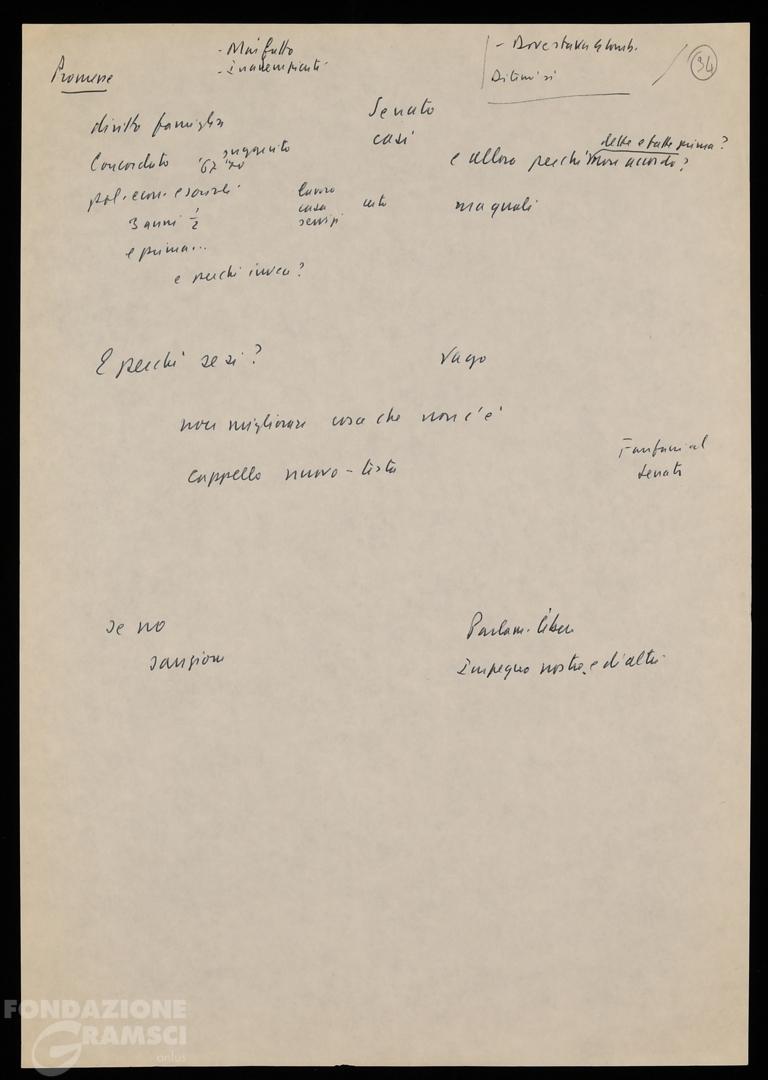 Promesse
- Mai fatto
- Inadempienti
- Dove stava G Lomb.
Ditemi si
34
diritto famiglia
Senato
casi
Concordato '67 '70
suggerito
e allora perché non accordo?
dette e fatte prima?
pol. econ. e sociali
3 anni 1/2
lavoro
casa
servizi
certo
ma quali
e prima...
e perché invece?
E perché se si?
Vago
non migliorare cosa che non c'è
cappello nuovo - testa
Fanfani al
Senato
se no
sanzioni
Parlam. libero
Impegno nostro e di altri
FONDAZIONE
GRAMSCI
onlus